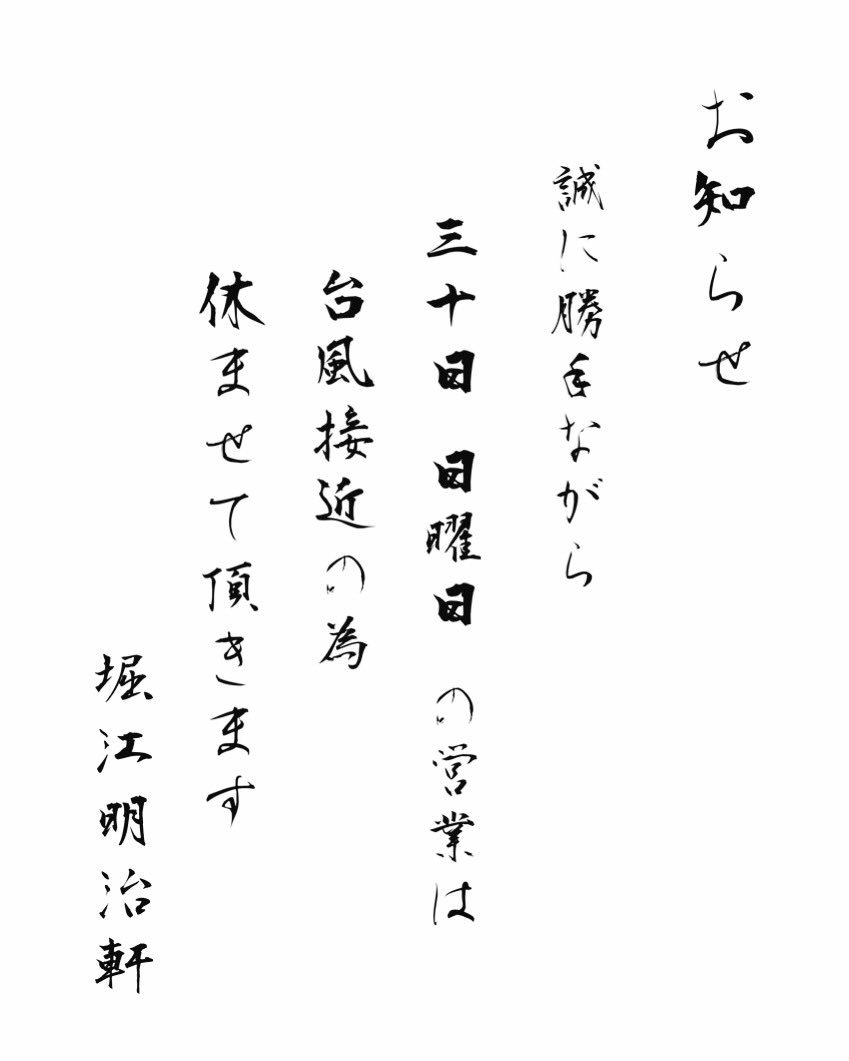 お知らせ
誠に勝手ながら
三十日 日曜日 の営業は
台風接近の為
休ませて頂きます
堀江明治軒